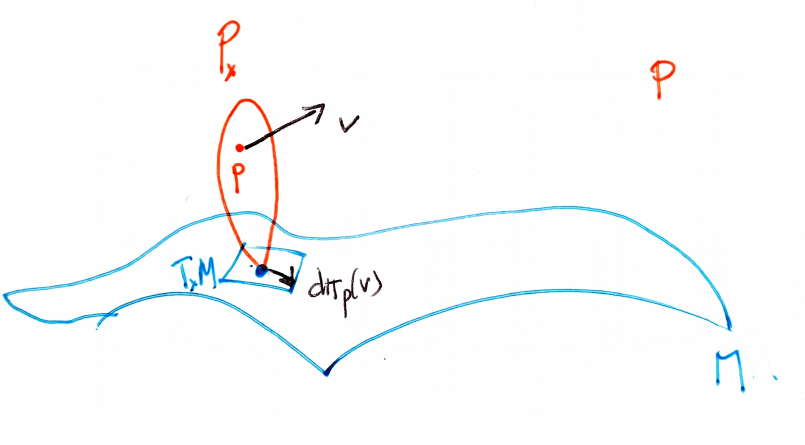 Pₓ
P
v
p
TₓM
dπₚ(v)
M